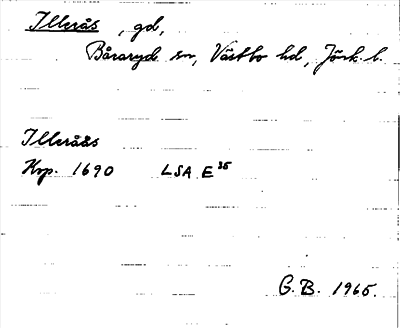 Illerås, gd,
Båraryd sn, Västbo hd, Jönk. l.
Illeråås
Krp. 1690 LSA E 35
G. B. 1965.